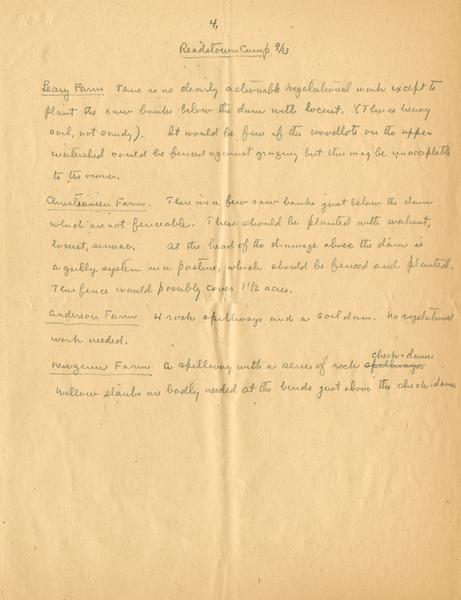 4,
Readstown Camp 9/13
Leary Farm There is no clearly actionable vegetational work except to
plant the raw banks below the dam with locust. (This is heavy
soil, not sandy). It would be fine if the woodlots on the upper
watershed could be fenced against grazing but this may be unacceptable
to the owner.
Christiansen Farm. There are a few raw banks just below the dam
which are not fenceable. These should be planted with walnut,
locust, sumac. At the head of the drainage above the dam is
a gully system in a pasture, which should be fenced and planted.
This fence would possibly cover 1 1/2 acres.
Anderson Farm 4 rock spillways and a soil dam. No vegetational
work needed.
Farm A spillway with a series of rock spillways. check-dams.
Willow are badly needed at the bends just above the check-dams